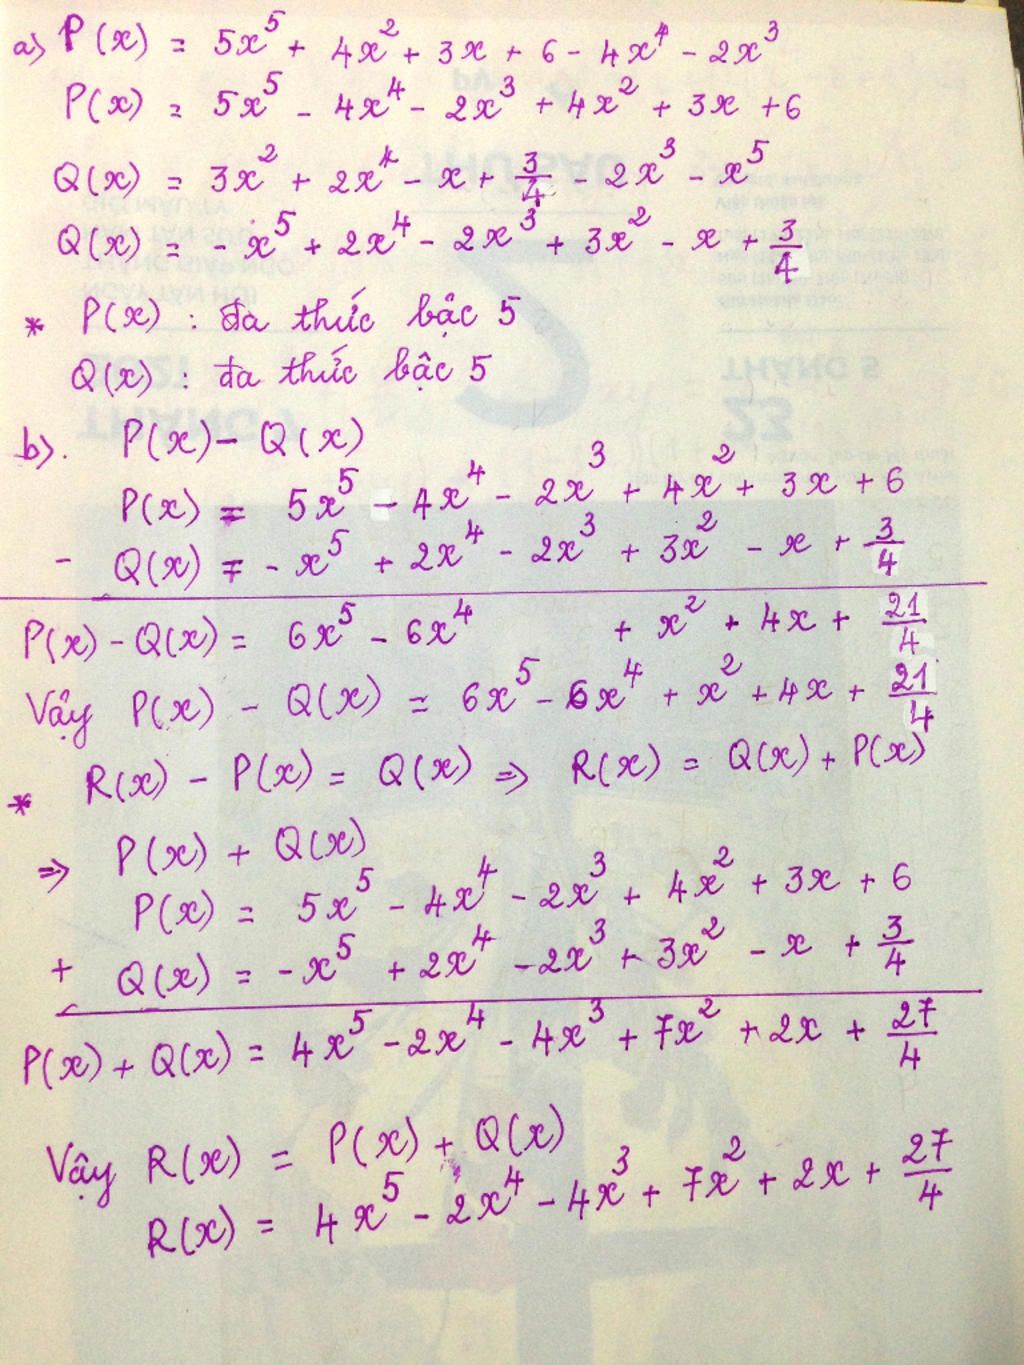 a) P(x) = 5x⁵ + 4x² + 3x + 6 - 4x⁴ - 2x³
P(x) = 5x⁵ - 4x⁴ - 2x³ + 4x² + 3x + 6
Q(x) = 3x² + 2x⁴ - x + 3/4 - 2x³ - x⁵
Q(x) = - x⁵ + 2x⁴ - 2x³ + 3x² - x + 3/4
* P(x) : đa thức bậc 5
Q(x) : đa thức bậc 5
b). P(x) - Q(x)
P(x) = 5x⁵ - 4x⁴ - 2x³ + 4x² + 3x + 6
- Q(x) = - x⁵ + 2x⁴ - 2x³ + 3x² - x + 3/4
P(x) - Q(x) = 6x⁵ - 6x⁴ + x² + 4x + 21/4
Vậy P(x) - Q(x) = 6x⁵ - 6x⁴ + x² + 4x + 21/4
* R(x) - P(x) = Q(x) => R(x) = Q(x) + P(x)
=> P(x) + Q(x)
P(x) = 5x⁵ - 4x⁴ - 2x³ + 4x² + 3x + 6
+ Q(x) = - x⁵ + 2x⁴ - 2x³ + 3x² - x + 3/4
P(x) + Q(x) = 4x⁵ - 2x⁴ - 4x³ + 7x² + 2x + 27/4
Vậy R(x) = P(x) + Q(x)
R(x) = 4x⁵ - 2x⁴ - 4x³ + 7x² + 2x + 27/4